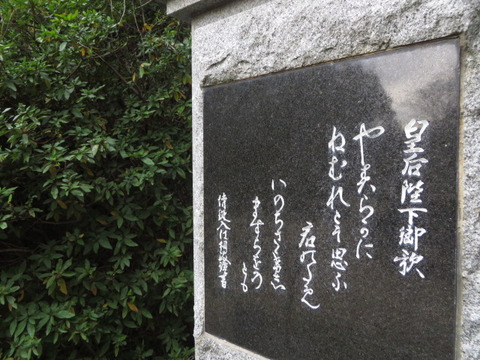 皇后陛下御歌
やすらかに
ねむれとぞ思ふ
君のため
いのちささげし
ますらをの
とも
侍従入江相政謹書